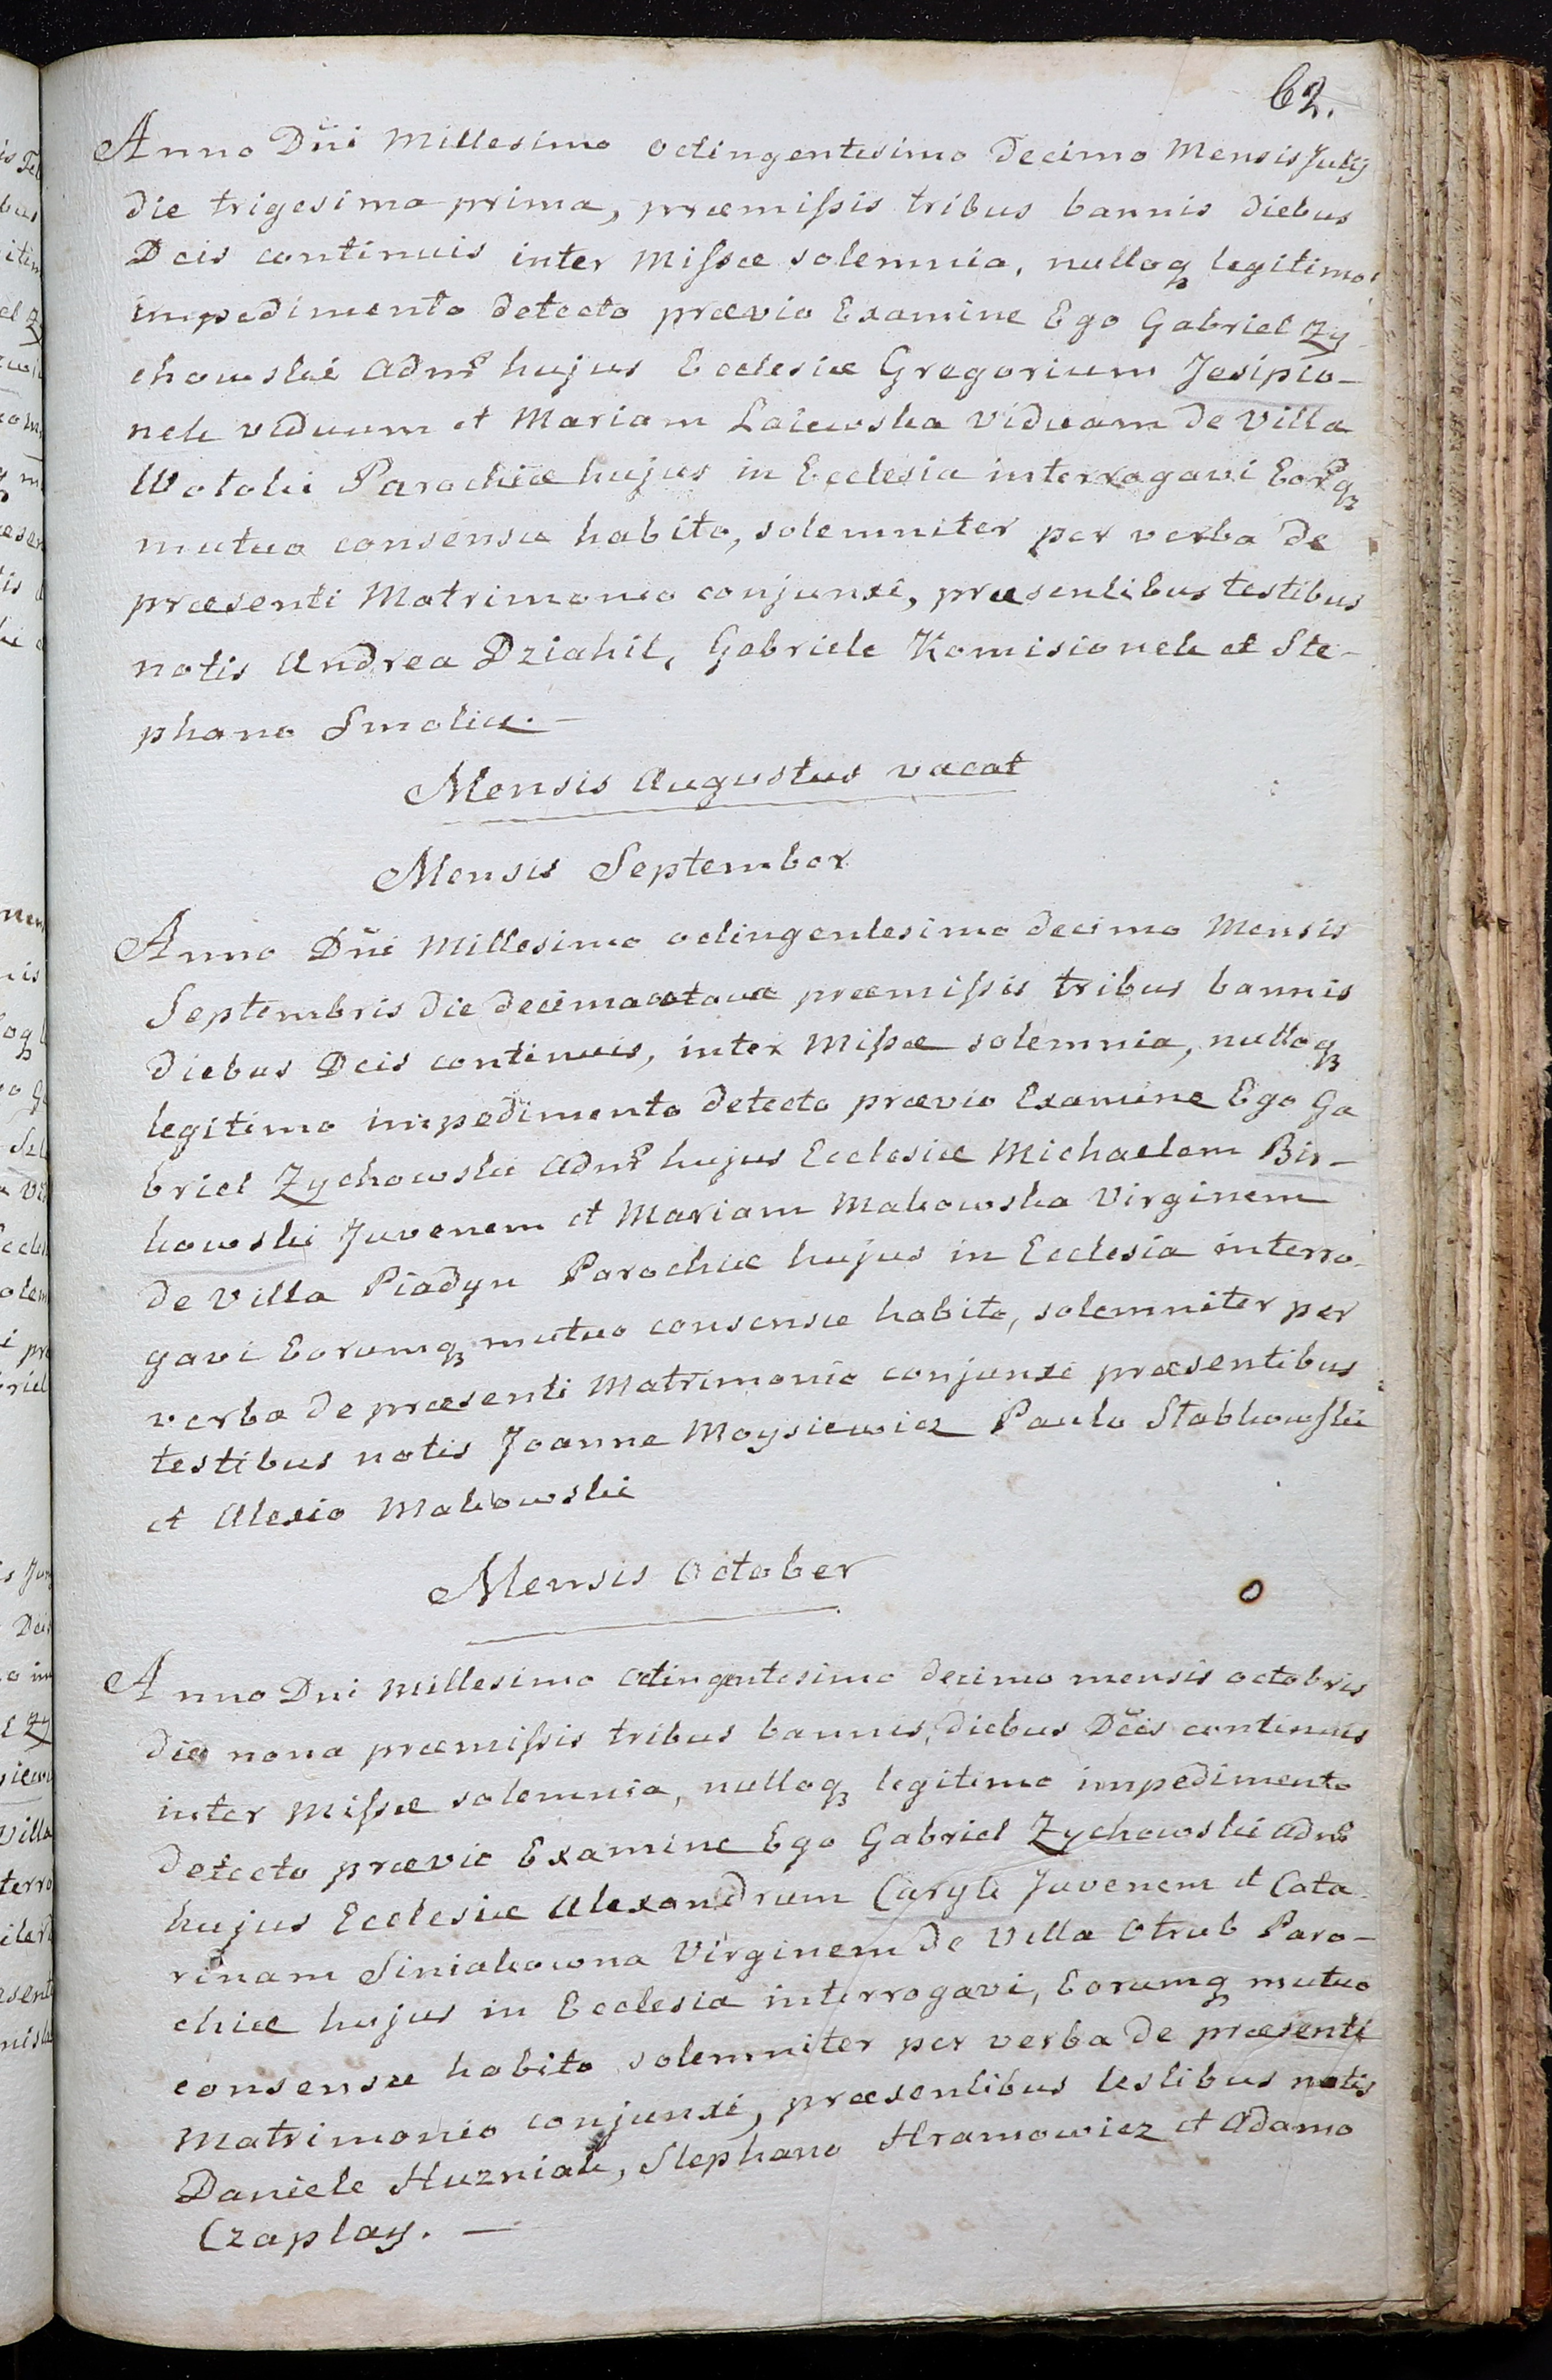 62.
Anno Dñi Millesimo octingentesimo decimo Mensis Julij
die trigesima prima, præmissis tribus bannis diebus
Dcis continuis inter Missæ solemnia, nulloq legitimo
impedimento detecto prævio Examine Ego Gabriel Zy-
chowski Admr hujus Ecclesiæ Gregorium Jesipio-
nek viduum et Mariam Laiewska Viduam de Villa
Wotoki Parochiæ hujus in Ecclesia interrogavi Eorq
mutuo consensu habito, solemniter per verba de
præsenti Matrimonio conjunxi, præsentibus testibus
notis Andrea Dziahil, Gabriele Komisionek et Ste-
phano Smolik. —
Mensis Augustus vacat
Mensis September
Anno Dñi Millesimo octingentesimo decimo Mensis
Septembris die decima octava præmissis tribus bannis
diebus Dcis continuis, inter Missæ solemnia, nulloq
legitimo impedimento detecto prævio Examine Ego Ga
briel Zychowski Admr hujus Ecclesiæ Michaelem Bir-
kowski Juvenem et Mariam Makowska Virginem
de Villa Piadyn Parochiæ hujus in Ecclesia interro-
gavi Eorumq mutuo consensu habito, solemniter per
verba de præsenti Matrimonio conjunxi præsentibus
testibus notis Joanne Moysiewicz Paulo Stabkowski
et Alexio Makowski
Mensis October
Anno Dni Millesimo octingentesimo decimo mensis octobris
die nona præmissis tribus bannis, diebus Dcis continuis
inter Missæ solemnia, nulloq legitimo impedimento
detecto prævio Examine Ego Gabriel Zychowski Admr
hujus Ecclesiæ Alexandrum Caryk Juvenem et Cata-
rinam Siniakowna Virginem de Villa Otrub Paro-
chiæ hujus in Ecclesia interrogavi, Eorumq mutuo
consensu habito solemniter per verba de præsenti
Matrimonio conjunxi, præsentibus testibus notis
Daniele Huzniak, Stephano Hramowicz et Adamo
Czaplay. —